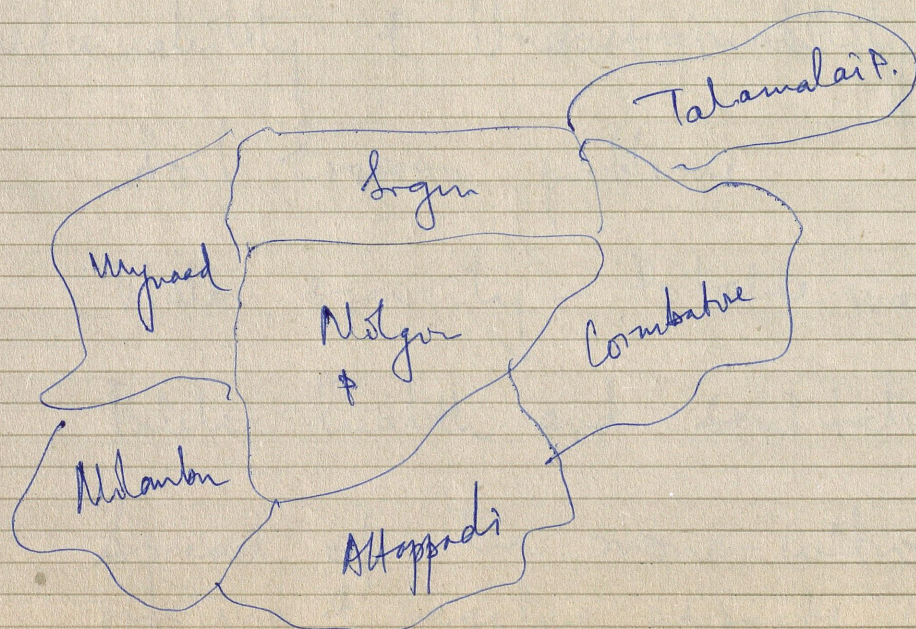 Talamalai P.
Sigur
Wynaad
Nilgiri
P
Coimbatore
Nilambur
Attappadi